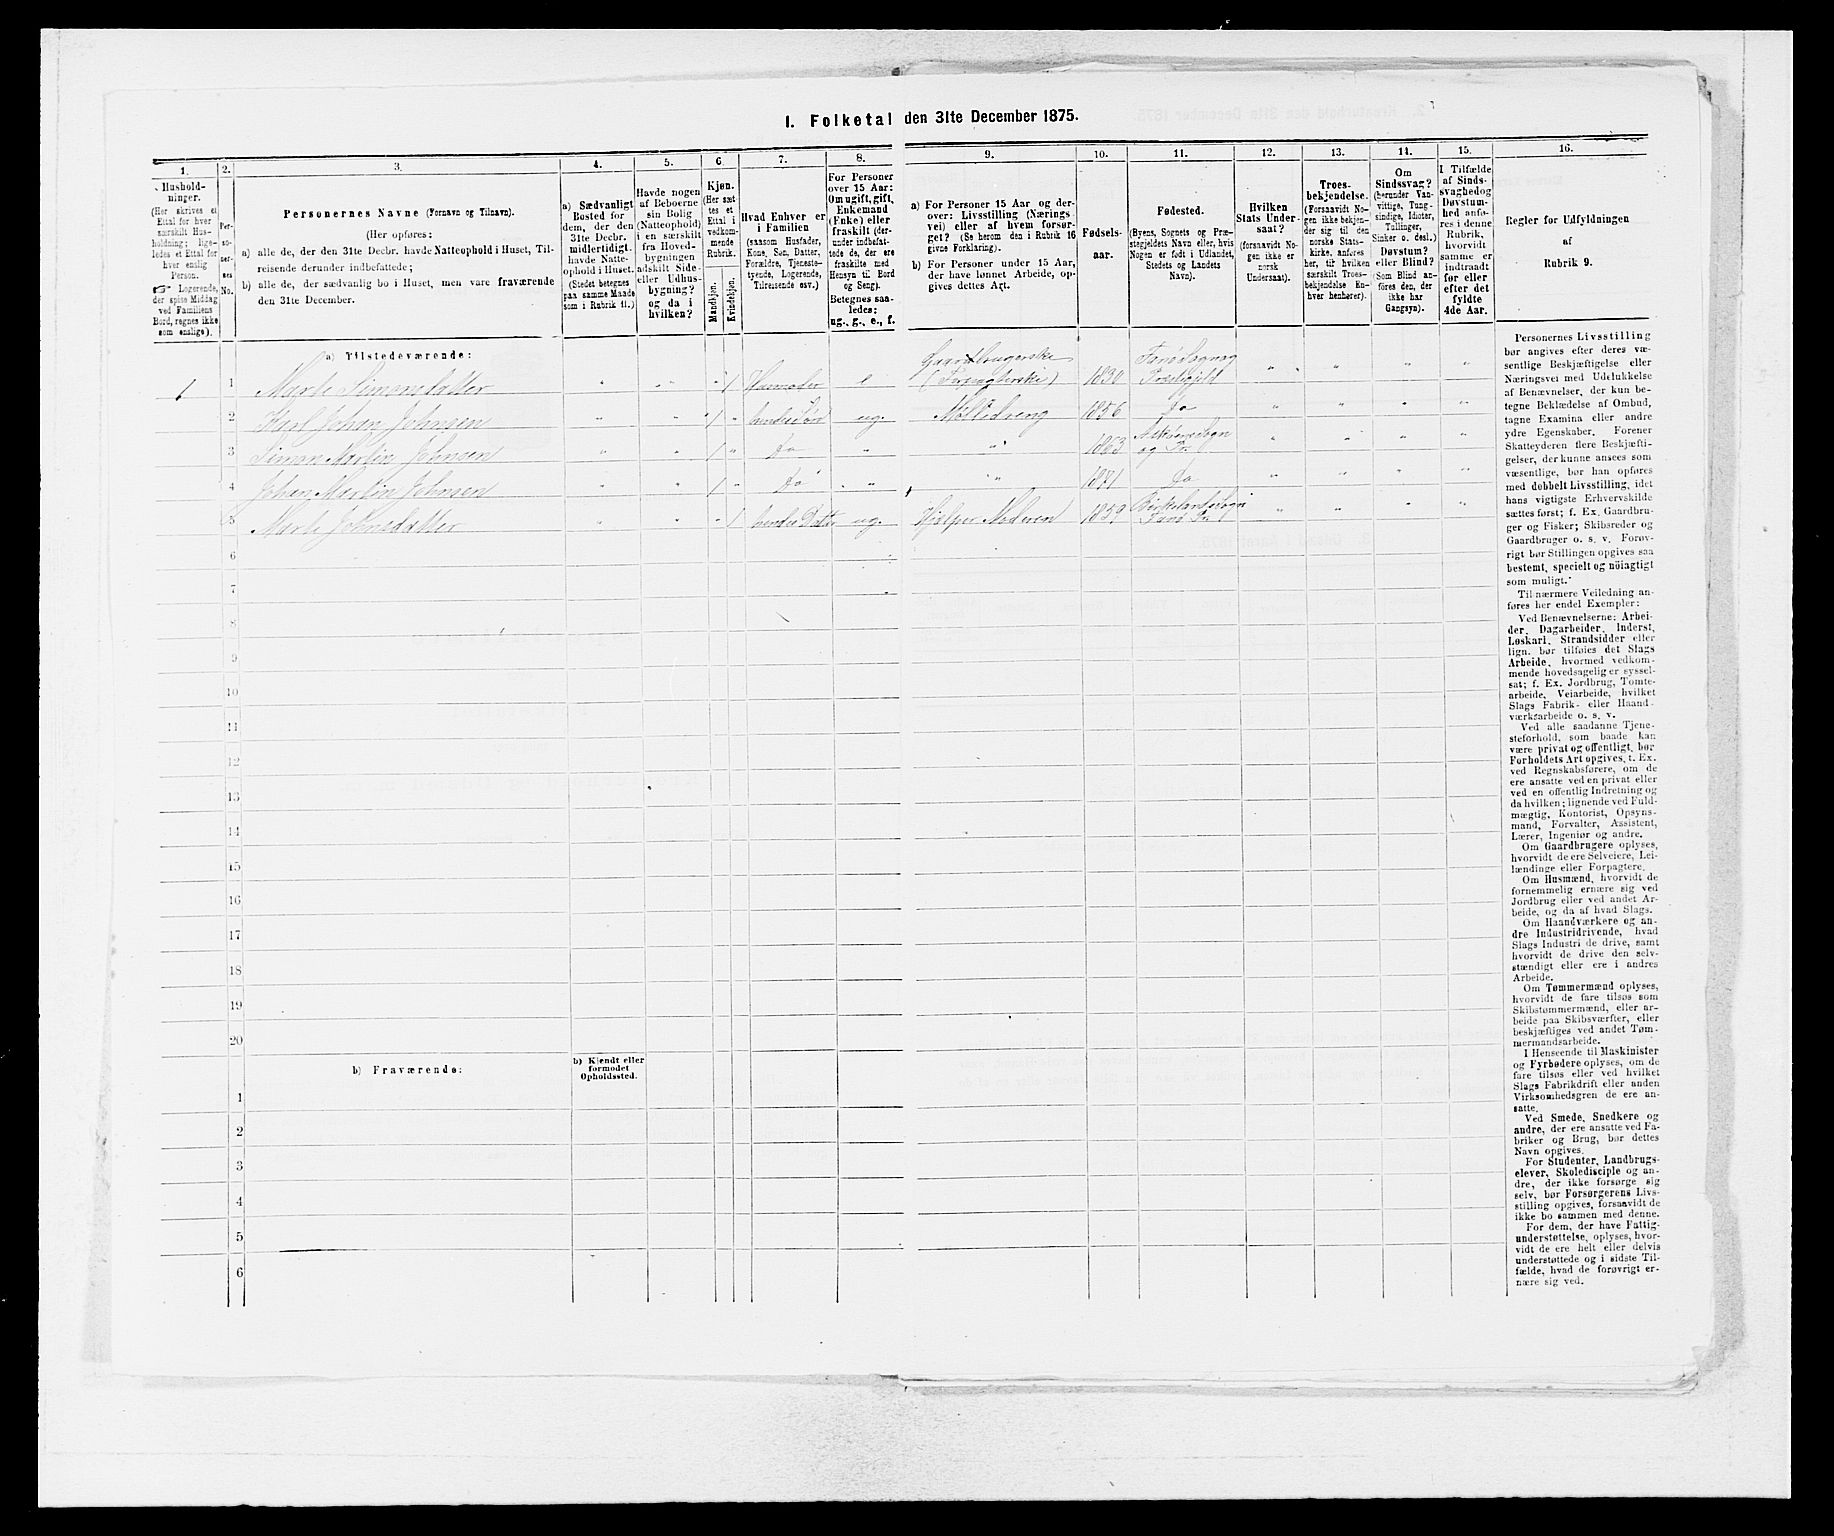 I. Folketal den 31te December 1875.
1. 2. 3. 4. 5. 6. 7. 8. 9. 10. 11. 12. 13. 14. 15. 16.
Hushold-
ninger.
(Her skrives et
Ettal for hver
særskilt Hus-
holdning; lige-
ledes et Ettal for
hver enslig
Person.
☞ Logerende,
der spise Middag
ved Familiens
Bord, regnes ikke
som enslige).
Per-
so-
ner-
nes
No.
Personernes Navne (Fornavn og Tilnavn).
(Her opføres:
a) alle de, der den 31te Decbr. havde Natteophold i Huset, Til-
reisende derunder indbefattede;
b) alle de, der sædvanlig bo i Huset, men vare fraværende
den 31te December.
a) Sædvanligt
Bosted for
dem, der den
31te Decbr.
midlertidigt
havde Natte-
ophold i Huset.
(Stedet betegnes
paa samme Maade
som i Rubrik 11.)
Havde nogen
af Beboerne
sin Bolig
(Natteophold)
i en særskilt
fra Hoved-
bygningen
adskilt Side-
eller Udhus-
bygning?
og da i
hvilken?
Kjøn.
(Her sæt-
tes et
Ettal i
vedkom-
mende
Rubrik.
Mandkjøn.
Kvindekjøn.
Hvad Enhver er
i Familien
(saasom Husfader,
Kone, Søn, Datter,
Forældre, Tjeneste-
tyende, Logerende,
Tilreisende osv.)
For Personer
over 15 Aar:
Om ugift, gift,
Enkemand
(Enke) eller
fraskilt (der-
under indbefat-
tede de, der ere
fraskilte med
Hensyn til Bord
og Seng).
Betegnes saa-
ledes:
ug., g., e., f.
a) For Personer 15 Aar og der-
over: Livsstilling (Nærings
vei) eller af hvem forsør-
get? (Se herom den i Rubrik 16
givne Forklaring).
b) For Personer under 15 Aar,
der have lønnet Arbeide, op-
gives dettes Art.
Fødsels-
aar.
Fødested.
(Byens, Sognets og Præ-
stegjeldets Navn eller, hvis
Nogen er født i Udlandet,
Stedets og Landets
Navn).
Hvilken
Stats Under-
saat?
(forsaavidt No-
gen ikke er
norsk
Undersaat).
Troes-
bekjendelse.
(Forsaavidt No-
gen ikke bekjen-
der sig til den
norske Stats-
kirke, anføres
her, til hvilken
særskilt Troes-
bekjendelse En-
hver henhører).
Om
Sindssvag?
(herunder Van-
vittige, Tung-
sindige, Idioter,
Tullinger,
Sinker o. desl.)
Døvstum?
eller Blind?
(Som Blind an-
føres den, der
ikke har
Gangsyn).
I Tilfælde
af Sinds-
svaghed og
Døvstum-
hed anfø-
res i denne
Rubrik,
hvorvidt
samme er
indtraadt
før eller
efter det
fyldte
4de Aar.
Regler for Udfyldningen
af
Rubrik 9.
a) Tilstedeværende:
1 1 Marte Simonsdatter " " " " 1 Husmoder e Gaardbrugerske (Forpagterske) 1830 Fanø Sogn og Præstegjeld " " " " "
2 Karl Johan Johnsen " " " 1 " hendes Søn ug. Mølledreng 1856 Do " " " "
3 Simon Martin Johnsen " " 1 " Do " " 1863 Askøens Sogn og Pr. " " " "
4 Johan Martin Johnsen " " 1 " Do " " " 1871 Do " " " "
5 Marte Johnsdatter " " " 1 hendes Datter ug. Hjælper Moderen 1859 Birkelands Sogn Fanø Pr. " " " "
6
7
8
9
10
11
12
13
14
15
16
17
18
19
20
b) Fraværende:
b) Kjendt eller
formodet
Opholdssted.
1
2
3
4
5
6
Personernes Livsstilling
bør angives efter deres væ-
sentlige Beskjæftigelse eller
Næringsvei med Udelukkelse
af Benævnelser, der kun be-
tegne Beklædelse af Ombud,
tagne Examina eller andre
ydre Egenskaber. Forener
Skatteyderen flere Beskjæfti-
gelser, der kunne ansees som
væsentlige, bør han opføres
med dobbelt Livsstilling, idet
hans vigtigste Erhvervskilde
sættes først; f. Ex. Gaardbru-
ger og Fisker; Skibsreder og
Gaardbruger o. s. v. Forøv-
rigt bør Stillingen opgives saa
bestemt, specielt og nöiagtigt
som muligt.
Til nærmere Veiledning an-
føres her endel Exempler:
Ved Benævnelserne: Arbei-
der, Dagarbeider, Inderst,
Løskarl, Strandsidder eller
lign. bør tilføies det Slags
Arbeide, hvormed vedkom-
mende hovedsagelig er syssel-
sat; f. Ex. Jordbrug, Tomte-
arbeide, Veiarbeide, hvilket
Slags Fabrik- eller Haand-
værksarbeide o. s. v.
Ved alle saadanne Tjene-
steforhold, som baade kan
være privat og offentligt, bør
Forholdets Art opgives, t. Ex.
ved Regnskabsførere, om de
ere ansatte ved en privat eller
ved en offentlig Indretning og
da hvilken; lignende ved Fuld-
mægtig, Kontorist, Opsyns-
mand, Forvalter, Assistent,
Lærer, Ingeniør og andre.
Om Gaardbrugere oplyses,
hvorvidt de ere Selveiere, Lei-
lændinge eller Forpagtere.
Om Husmænd, hvorvidt de
fornemmelig ernære sig ved
Jordbrug eller ved andet Ar-
beide, og da af hvad Slags.
Om Haandværkere og an-
dre Industridrivende, hvad
Slags Industri de drive, samt
hvorvidt de drive den selv-
stændigt eller ere i andres
Arbeide.
Om Tømmermænd oplyses,
hvorvidt de fare tilsøs som
Skibstømmermænd, eller ar-
beide paa Skibsværfter, eller
beskjæftiges ved andet Tøm-
mermandsarbeide.
I Henseende til Maskinister
og Fyrbødere oplyses, om de
fare tilsøs eller ved hvilket
Slags Fabrikdrift eller anden
Virksomhedsgren de ere an-
satte.
Ved Smede, Snedkere og
andre, der ere ansatte ved Fa-
briker og Brug, bør dettes
Navn opgives.
For Studenter, Landbrugs-
elever, Skoledisciple og an-
dre, der ikke forsørge sig
selv, bør Forsørgerens Livs-
stilling opgives, forsaavidt de
ikke bo sammen med denne.
For dem, der have Fattig-
understøttelse, oplyses, hvor-
vidt de ere helt eller delvis
understøttede og i sidste Til-
fælde, hvad de forøvrigt er-
nære sig ved.